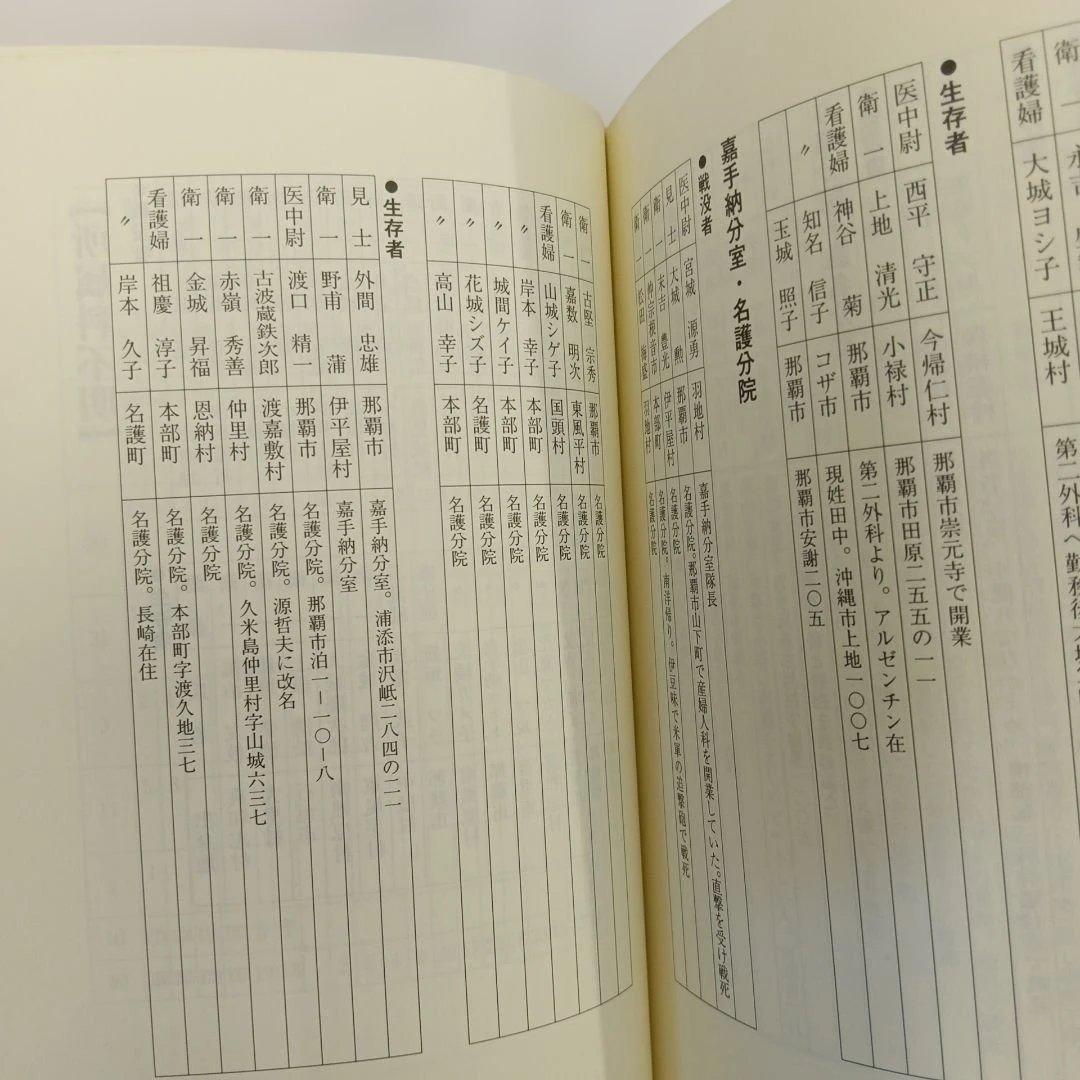 衛一
看護婦 大城ヨシ子 玉城村 第二外科へ勤務後
●生存者
医中尉 西平 守正 今帰仁村 那覇市崇元寺で開業
衛一 上地 清光 小禄村 那覇市田原二五五の一一
看護婦 神谷 菊 那覇市 第二外科より。アルゼンチン在
〃 知名 信子 コザ市 現姓田中。沖縄市上地一〇〇七
〃 玉城 照子 那覇市 那覇市安謝二〇五
嘉手納分室・名護分院
●戦没者
医中尉 宮城 源勇 羽地村 嘉手納分室隊長
見士 大城 勲 那覇市 名護分院。那覇市山下町で産婦人科を開業していた。直撃を受け戦死
衛一 末吉 豊光 伊平屋村 名護分院
衛一 仲宗根音市 本部町 名護分院。南洋帰り。伊豆味で米軍の迫撃砲で戦死
衛一 松田 梅盛 羽地村 名護分院
衛一 古堅 宗秀 那覇市 名護分院
衛一 嘉数 明次 東風平村 名護分院
看護婦 山城シゲ子 国頭村 名護分院
〃 岸本 幸子 本部町 名護分院
〃 城間ケイ子 本部町 名護分院
〃 花城シズ子 名護町 名護分院
〃 高山 幸子 本部町 名護分院
●生存者
見士 外間 忠雄 那覇市 嘉手納分室。浦添市沢岻二八四の二一
衛一 野甫 蒲 伊平屋村 嘉手納分室
医中尉 渡口 精一 那覇市 名護分院。那覇市泊一―一〇―八
衛一 古波蔵鉄次郎 渡嘉敷村 名護分院。源哲夫に改名
衛一 赤嶺 秀善 仲里村 名護分院。久米島仲里村字山城六三七
衛一 金城 昇福 恩納村 名護分院
看護婦 祖慶 淳子 本部町 名護分院。本部町字渡久地三七
〃 岸本 久子 名護町 名護分院。長崎在住